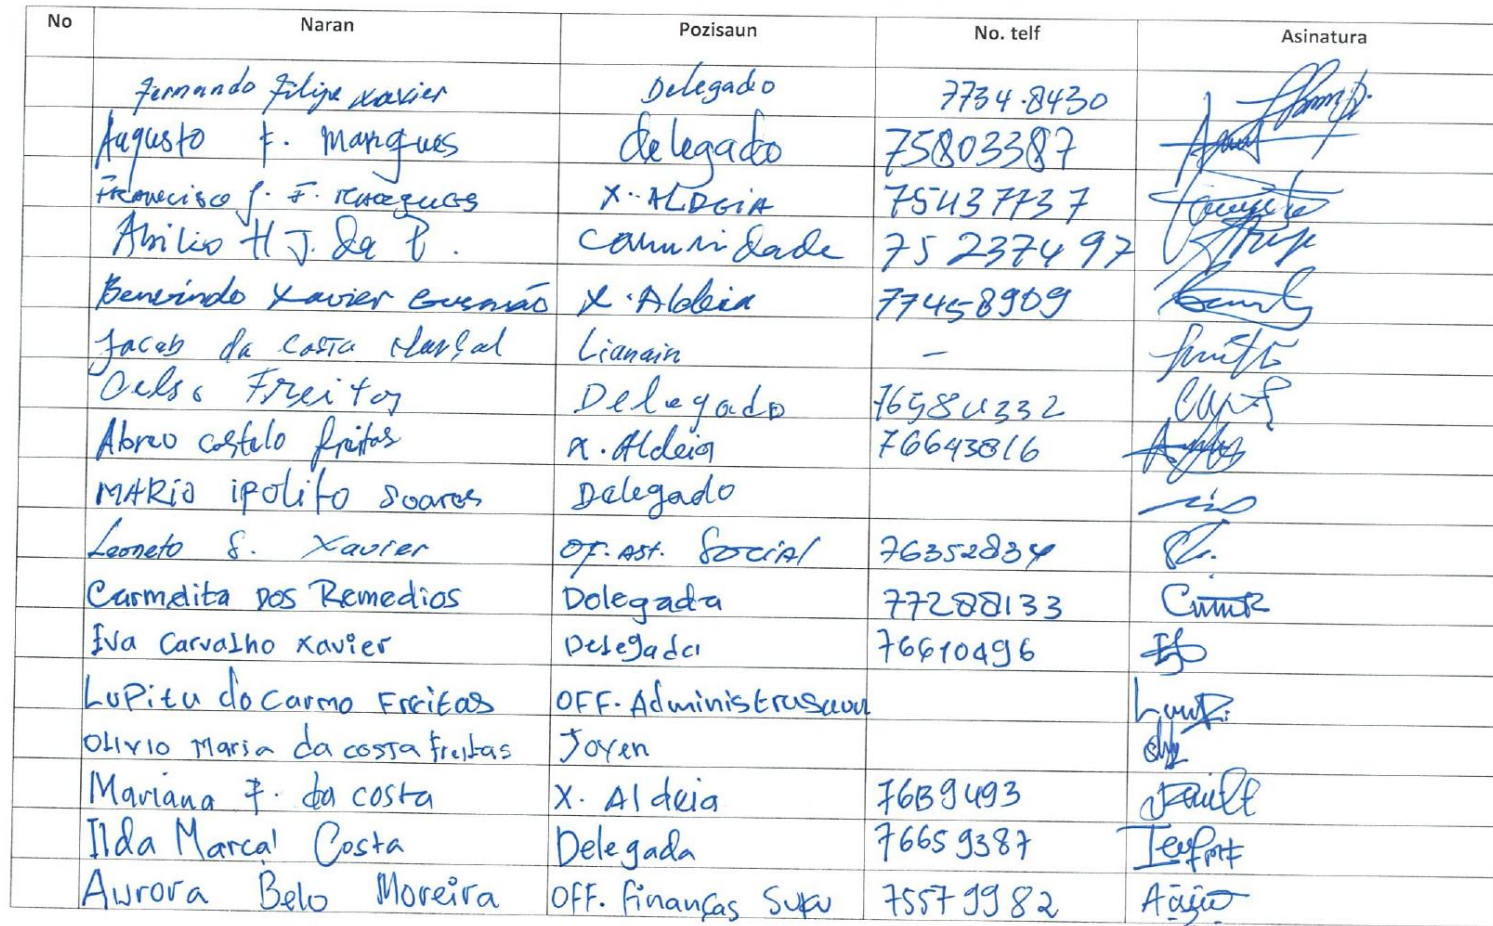 No Naran Pozisaun No. telf Asinatura
Fernando Filipe Xavier Delegado 7734.8430
Augusto F. Marques delegado 75803387
Francisco J. F. Marques X. ALDEIA 75437737
Abilio H J. da P. Comunidade 75237497
Benevindo Xavier Gusmão X. Aldeia 77458909
Jacob da Costa Marçal Lianain –
Celso Freitas Delegado
Abreo Costelo freitas X. Aldeia 76643816
MARIO iPOLiTO Soares Delegado
Leoneto S. Xavier OF. AST. Social 76352834
Carmelita DOS Remedios Dolegada 77288133
Iva Carvalho Xavier Delegada 76610496
LuPitu do Carmo Freitas OFF. Administrasaun
OLIVIO Maria da COSTA freitas Joven
Mariana F. da costa X. Aldeia
Ilda Marcal Costa Delegada 76659387
Aurora Belo Moreira OFF. finanças Suku 75579982